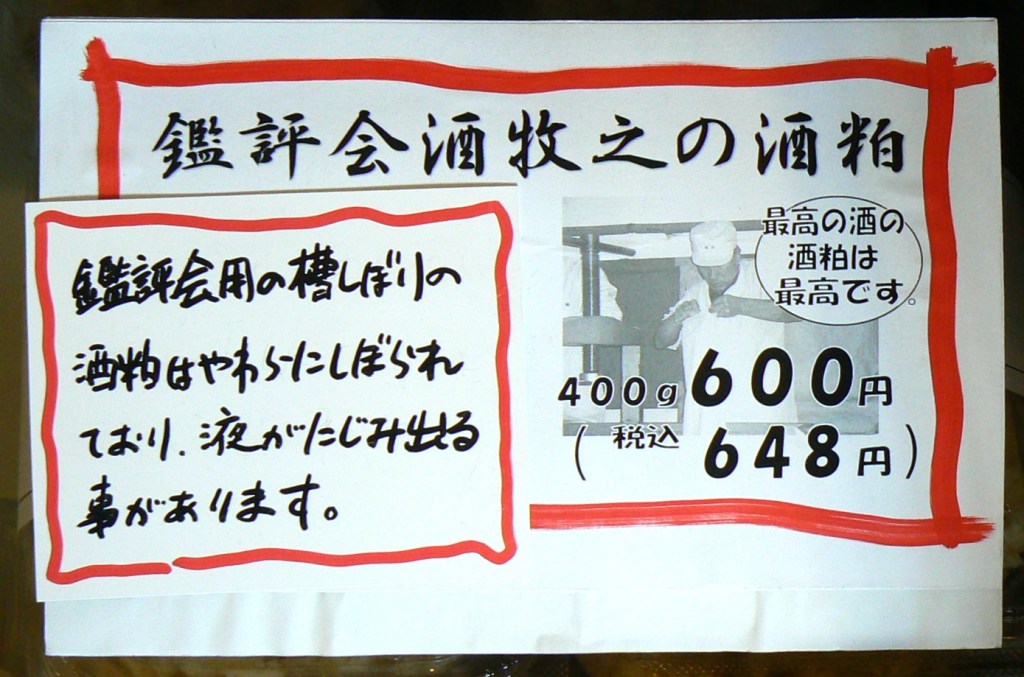 鑑評会酒牧之の酒粕
最高の酒の
酒粕は
最高です。
400g 600円
(税込 648円)
鑑評会用の槽しぼりの
酒粕はやわらにしぼられ
ており、液がにじみ出る
事があります。